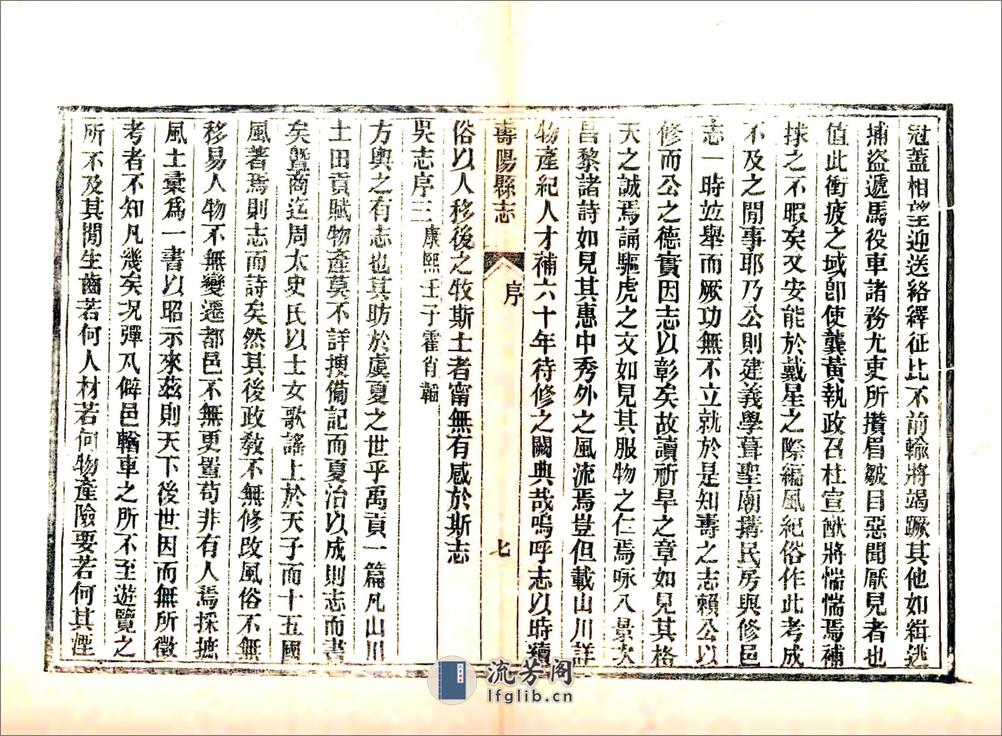 冠蓋相望迎送絡繹征比不前輸將竭蹶其他如緝逃
捕盜遞馬役車諸務尤吏所攢眉皺目惡聞厭見者也
值此衝疲之域卽使龔黃執政召杜宣猷將惴惴焉補
捄之不暇矣又安能於戴星之際編風紀俗作此考成
不及之閒事耶乃公則建義學葺聖廟搆民房與修邑
志一時竝舉而厥功無不立就於是知壽之志賴公以
修而公之德實因志以彰矣故讀祈旱之章如見其格
天之誠焉誦驅虎之文如見其服物之仁焉咏八景次
昌黎諸詩如見其惠中秀外之風流焉豈但載山川詳
物產紀人才補六十年待修之闕典哉嗚呼志以時續
壽陽縣志
序
七
俗以人移後之牧斯土者甯無有感於斯志
吳志序三康熙壬子霍肖韜
方輿之有志也其昉於虞夏之世乎禹貢一篇凡山川
土田貢賦物產莫不詳搜備記而夏治以成則志而書
矣曁商迄周太史氏以士女歌謠上於天子而十五國
風著焉則志而詩矣然其後政敎不無修改風俗不無
移易人物不無變遷都邑不無更置苟非有人焉採摭
風土彙爲一書以昭示來茲則天下後世因而無所徵
考者不知凡幾矣况彈丸僻邑輶車之所不至遊覽之
所不及其閒生齒若何人材若何物產險要若何其煙
流芳阁
lfglib.cn